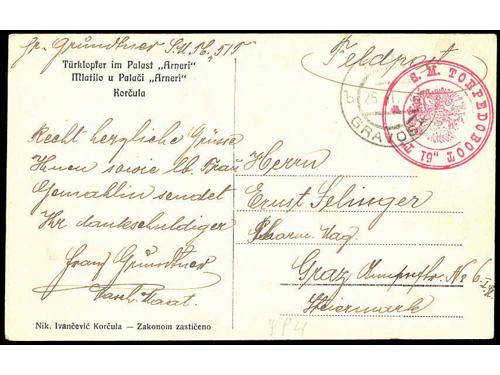 Gr. Grundtner S.M.Tb. 51T
Feldpost
Türklopfer im Palast „Arneri"
Mlatilo u Palači „Arneri"
Korčula
S. M. TORPEDOBOOT
GRAVO
Recht herzliche Grüsse
Ihnen sowie lb. Frau
Gemahlin sendet
Ihr dankschuldiger
Franz Grundtner
Herrn
Ernst Selinger
Pharm. Mag.
Graz
No 6
Steiermark
Nik. Ivančević Korčula — Zakonom zastićeno